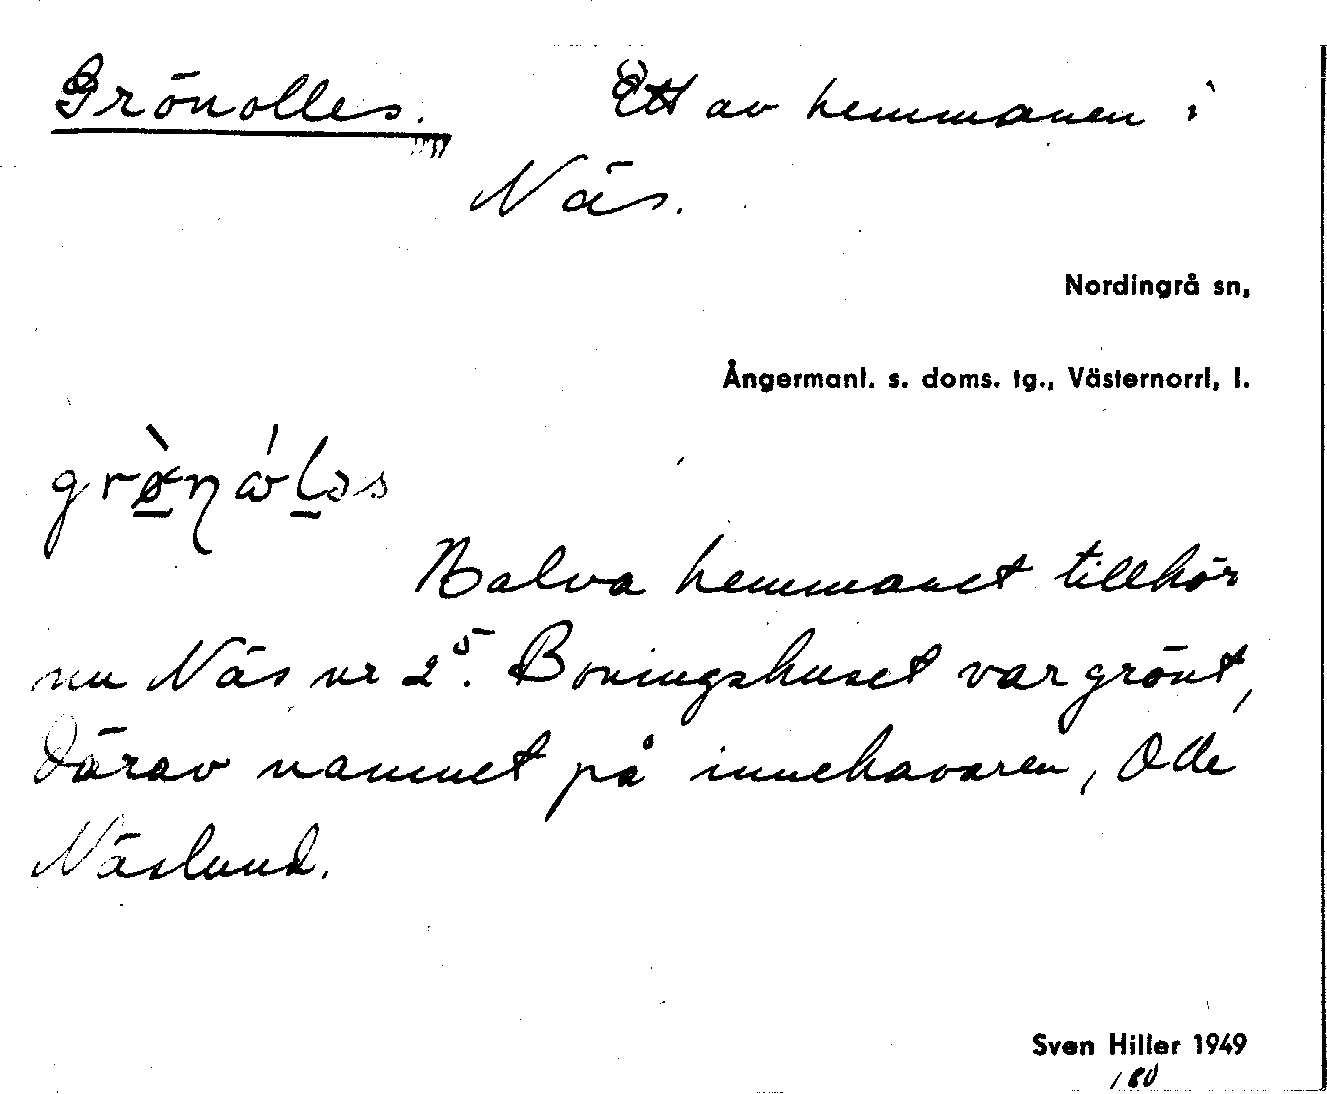 Grönolles. Ett av hemmanen i
Näs.
Nordingrå sn,
Ångermanl. s. doms. tg., Västernorrl, l.
Halva hemmanet tillhör
nu Näs nr 2⁵. Boningshuset var grönt,
därav namnet på innehavaren, Olle
Näslund.
Sven Hiller 1949
180